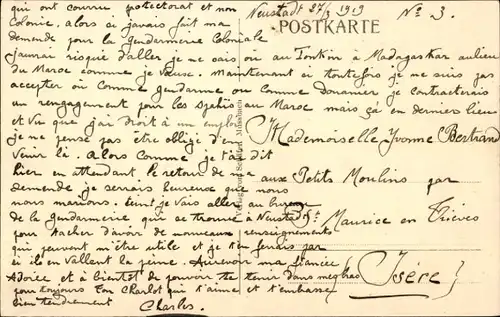 qui ont courru protectorat et non
Colonie, alors si javais fait ma
demande pour la gendarmerie Coloniale
jaurrai risqué d'aller je ne sais où au Tonkin à Madagaskar au lieu
du Maroc comme je Veux. Maintenant si toutefois je ne suis pas
accepter où Comme gendarme ou Comme Douanier je Contracterais
un rengagement pour les Spahis au Maroc mais ça en dernier lieu
et Vu que j'ai Droit à un emploi
je ne pense pas être obligé d'en
Venir là. Alors Comme je t'ai dit
hier en attendant le retour de ma
demande je serrais heureux que nous
nous marions. je Vais aller au bureau
de la gendarmerie qui se trouve à Neustadt
pour tacher d'avoir de nouveaux renseignements
qui peuvent m'être utile et je t'en ferais par
si ils en Vallent la peine. Au revoir ma fiancée
Adorée et à bientôt de pouvoir te tenir dans mes bras
pour toujours Ton Charlot qui t'aime et t'embrasse
bien tendrement
Charles.
Neustadt 27/3 1919 No 3.
POSTKARTE
Mademoiselle Yvonne Bertrand
aux Petits Moulins par
St Maurice en Trièves
(Isère)